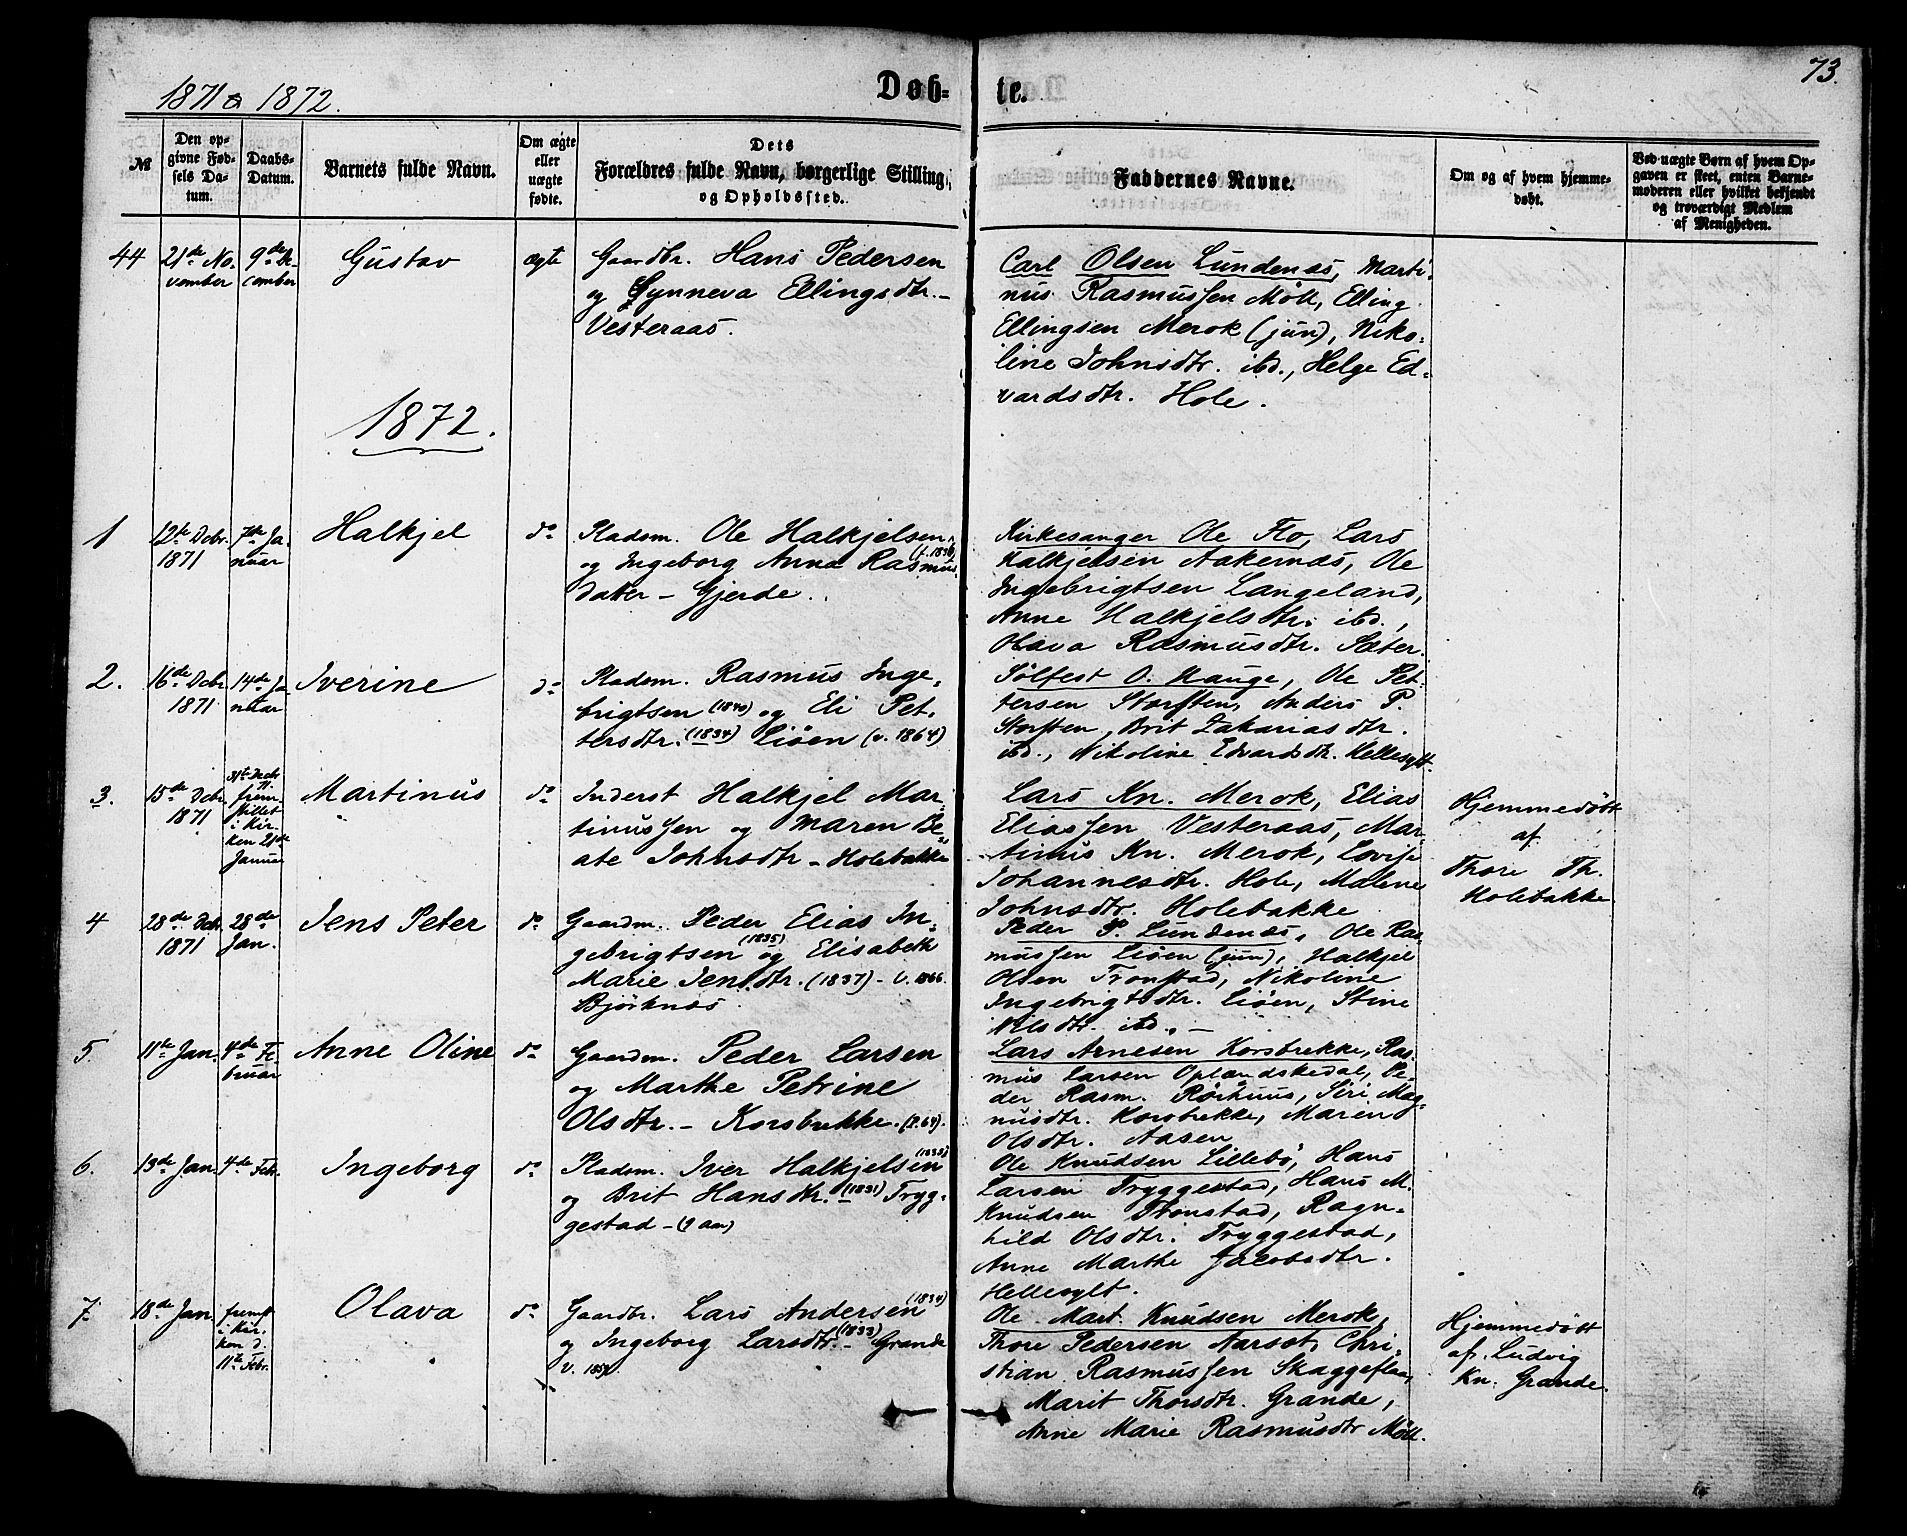 1871 & 1872.
Døb-
te.
73.
№
Den op-
givne Fød-
sels Da-
tum.
Daabs-
Datum.
Barnets fulde Navn.
Om ægte
eller
uægte
fødte.
Dets
Forældres fulde Navn, borgerlige Stilling
og Opholdssted.
Faddernes Navne.
Om og af hvem hjemme-
døbt.
Ved uægte Børn af hvem Op-
gaven er skeet, enten Barne-
moderen eller hvilket bekjendt
og troværdigt Medlem
af Menigheden.
44
21de No-
vember
9de De-
cember
Gustav
ægte
Gaardbr. Hans Pedersen
og Synneva Ellingsdtr. -
Vesteraas.
Carl Olsen Lundenæs, Marti-
nus Rasmussen Möll, Elling
Ellingsen Merok (jun), Niko-
line Johnsdtr. ibd., Helge Ed-
vardsdtr. Hole.
1872.
1
12te Dcbr.
1871
7de Ja-
nuar
Halkjel
do
Pladsm. Ole Halkjelsen
og Ingeborg Anna Rasmus-
datter - Gjerde.
Kirkesanger Ole Flo, Lars
Halkjelsen Aakernæs, Ole
Ingebrigtsen Langeland,
Anne Halkjelsdtr. ibd.,
Olava Rasmusdtr. Sæter.
2.
16de Dcbr
1871
14de Ja-
nuar
Iverine
do
Pladsm. Rasmus Inge-
brigtsen (1840) og Eli Pet-
tersdtr. (1834) Liöen (v. 1864)
Sölfest O. Hauge, Ole Pet-
tersen Storften, Anders P.
Storften, Brit Zakariasdtr.
ibd., Nikoline Edvardsdtr. Hellesylt.
3.
15de Dcbr
1871
31te Decbr
71.
frem-
stillet
i Kir-
ken 21de
Januar
Martinus
do
Inderst Halkjel Mar-
tinussen og Maren Be-
ate Johnsdtr - Holebakke
Lars Kn. Merok, Elias
Eliassen Vesteraas, Mar-
tinus Kn. Merok, Lovise
Johannesdtr. Hole, Malene
Johnsdtr. Holebakke
Hjemmedöbt
af
Thore Th.
Holebakke
4
28de Dcbr.
1871
28de
Jan.
Jens Peter
do
Gaardm. Peder Elias In-
gebrigtsen (1835) og Elisabeth
Marie Jensdtr. (1837) - v. 1866.
Björknæs.
Peder P. Lundenæs, Ole Ras-
mussen Liöen (jun), Halkjel
Olsen Tronstad, Nikoline
Ingebrigtsdtr. Liöen, Stine
Nilsdtr. ibd. -
5.
11te Jan.
4de Fe-
bruar
Anne Oline
do
Gaardm. Peder Larsen
og Marthe Petrine
Olsdtr. - Korsbrekke.
Lars Arnesen Korsbrekke, Ras-
mus Larsen Oplændskedal, Pe-
der Rasm. Rörhuus, Siri Mag-
nusdtr. Korsbrekke, Maren
Olsdtr. Aasen
6.
13de Jan.
4de Febr.
Ingeborg
do
Pladsm. Iver Halkjelsen
og Brit Hansdtr. (1831) Tryg-
gestad -
Ole Knudsen Lillebö, Hans
Larsen Tryggestad, Hans M.
Knudsen Tronstad, Ragn-
hild Olsdtr. Tryggestad,
Anne Marthe Jacobsdtr.
Hellesylt.
7.
18de Jan
fremst
i Kir-
ken d.
11te Febr.
Olava
do
Gaardbr. Lars Andersen (1834)
og Ingeborg Larsdtr. (1833) - Grande
Ole Mart. Knudsen Merok,
Thore Pedersen Aarset, Chri-
stian Rasmussen Skaggeflaa,
Marit Thorsdtr. Grande,
Anne Marie Rasmusdtr Möll.
Hjemmedöbt
af Ludvig
Kn. Grande.